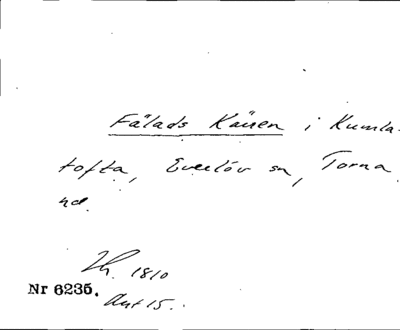 Fälads Kärren i Kumla-
tofta, Everlöv sn, Torna
hd.
Th. 1810
Nr 6235.
Avt 15.